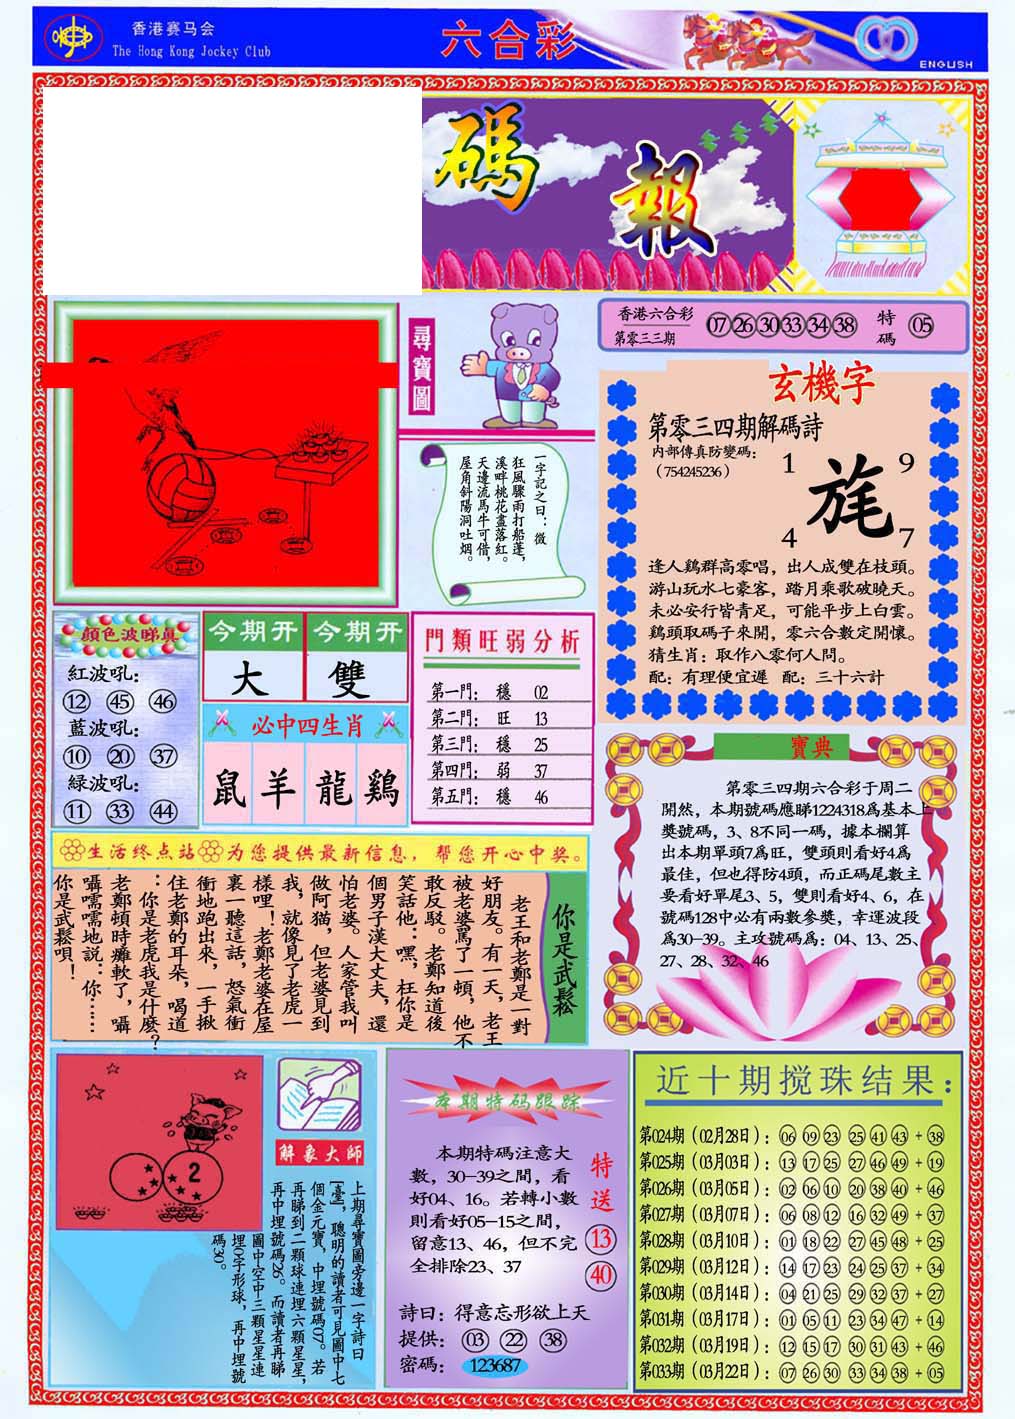 香港赛马会
The Hong Kong Jockey Club
六合彩
ENGLISH
碼報
尋寶圖
香港六合彩
第零三三期
07 26 30 33 34 38 特碼 05
一字記之曰：微
狂風驟雨打船蓬，
溪畔桃花盡落紅。
天邊流馬牛可借，
屋角斜陽洞吐烟。
玄機字
第零三四期解碼詩
内部傳真防變碼：
（754245236）
1 9
旄
4 7
逢人鷄群高零唱，出人成雙在枝頭。
游山玩水七豪客，踏月乘歌破曉天。
未必安行皆青足，可能平步上白雲。
鷄頭取碼子來開，零六合數定開懷。
猜生肖：取作八零何人問。
配：有理便宜遲 配：三十六計
顏色波睇真
紅波吼：
12 45 46
藍波吼：
10 20 37
緑波吼：
11 33 44
今期开 今期开
大 雙
必中四生肖
鼠 羊 龍 鷄
門類旺弱分析
第一門： 穩 02
第二門： 旺 13
第三門： 穩 25
第四門： 弱 37
第五門： 穩 46
寶典
第零三四期六合彩于周二
開然，本期號碼應睇1224318爲基本上
獎號碼，3、8不同一碼，據本欄算
出本期單頭7爲旺，雙頭則看好4爲
最佳，但也得防4頭，而正碼尾數主
要看好單尾3、5，雙則看好4、6，在
號碼128中必有兩數參獎，幸運波段
爲30—39。主攻號碼爲：04、13、25、
27、28、32、46
生活终点站 为您提供最新信息，帮您开心中奖。
你是武鬆
老王和老鄭是一對
好朋友。有一天，老王
被老婆罵了一頓，他不
敢反駁。老鄭知道後
笑話他：嘿，枉你是
個男子漢大丈夫，還
怕老婆。人家管我叫
做阿猫，但老婆見到
我，就像見了老虎一
樣哩！老鄭老婆在屋
裏一聽這話，怒氣衝
衝地跑出來，一手揪
住老鄭的耳朵，喝道
：你是老虎我是什麽？
老鄭頓時癱軟了，囁
囁嚅嚅地説：你……
你是武鬆唄！
2
解象大師
上期尋寶圖旁邊一字詩曰
[臺]，聰明的讀者可見圖中七
個金元寶，中埋號碼07。若
再睇到二顆球連埋六顆星星，
再中埋號碼26。而讀者再睇
圖中空中三顆星星連
埋0字形球，再中埋號
碼30。
本期特码跟踪
本期特碼注意大
數，30—39之間，看
好04、16。若轉小數
則看好05—15之間，
留意13、46，但不完
全排除23、37
特送
13
40
詩曰：得意忘形欲上天
提供： 03 22 38
密碼： 123687
近十期搅珠结果：
第024期（02月28日）：06 09 23 25 41 43 + 38
第025期（03月03日）：13 17 25 27 46 49 + 19
第026期（03月05日）：02 06 10 20 38 40 + 46
第027期（03月07日）：06 08 12 16 32 49 + 37
第028期（03月10日）：01 18 22 27 45 48 + 25
第029期（03月12日）：14 17 23 24 25 37 + 34
第030期（03月14日）：04 21 25 29 32 37 + 27
第031期（03月17日）：01 05 11 23 34 47 + 14
第032期（03月19日）：12 15 17 30 31 43 + 46
第033期（03月22日）：07 26 30 33 34 38 + 05